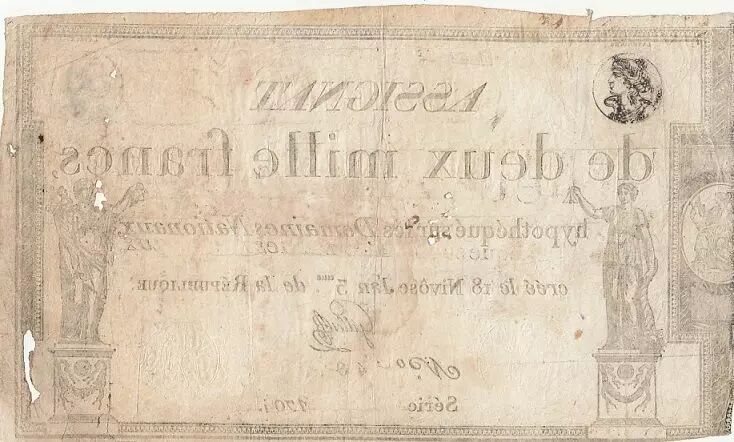 ASSIGNAT
de deux mille francs,
hypothéqué sur les Domaines Nationaux,
créé le 18 Nivôse l'an 3me. de la RÉPUBLIQUE.
Série